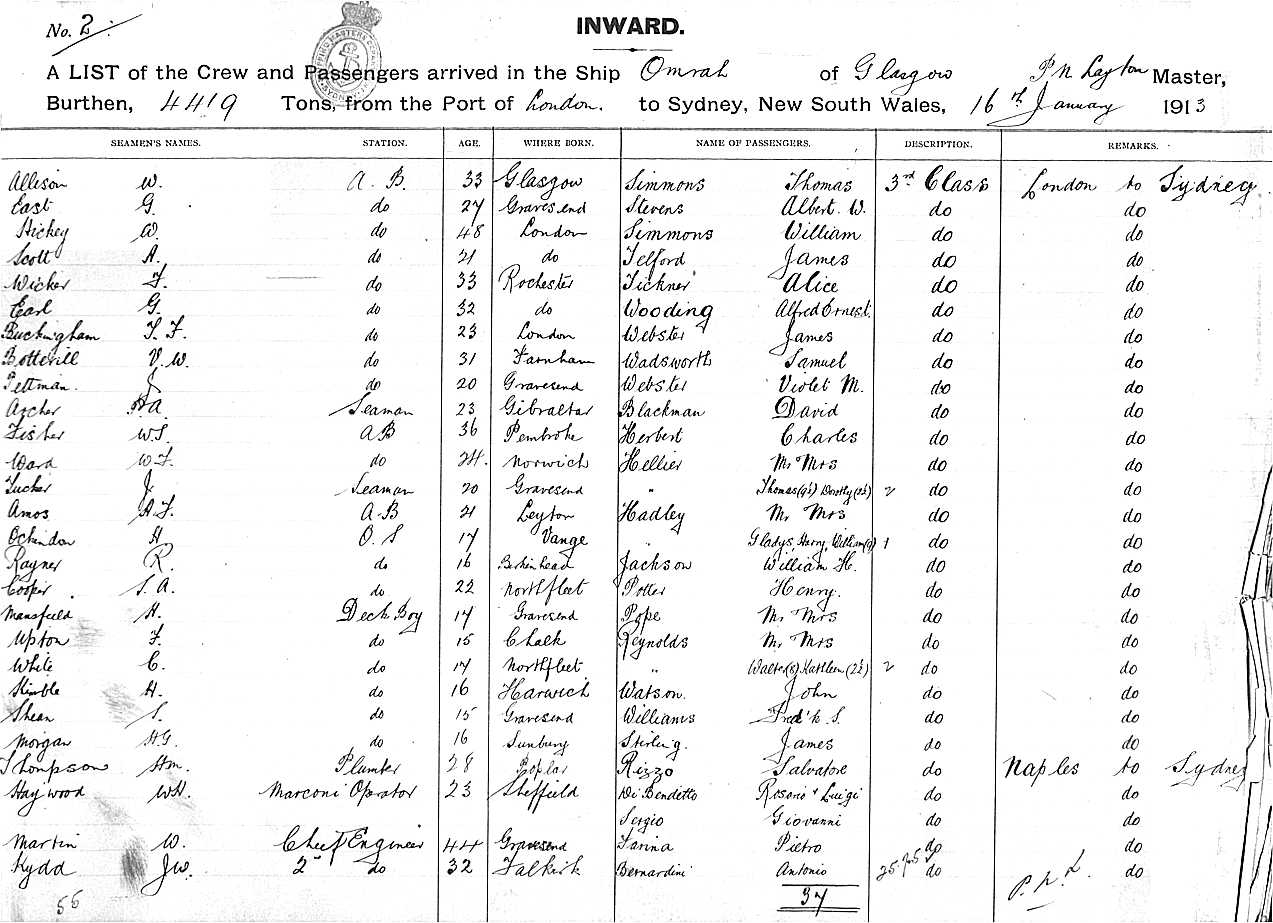 No. 2.
INWARD.
A LIST of the Crew and Passengers arrived in the Ship Omrah of Glasgow P N Layton Master,
Burthen, 4419 Tons, from the Port of London. to Sydney, New South Wales, 16th January 1913
SEAMEN'S NAMES. STATION. AGE. WHERE BORN. NAME OF PASSENGERS. DESCRIPTION. REMARKS.
Allison W. A. B. 33 Glasgow Simmons Thomas 3rd Class London to Sydney
East G. do 27 Gravesend Stevens Albert. W. do do
Hickey W. do 48 London Simmons William do do
Scott A. do 21 do Telford James do do
Wicker F. do 33 Rochester Tickner Alice do do
Earl G. do 32 do Wooding Alfred Ernest. do do
Buckingham T. F. do 23 London Webster James do do
Botterill V. W. do 31 Farnham Wadsworth Samuel do do
Pettman. J do 20 Gravesend Webster Violet M. do do
Archer HA. Seaman 23 Gibraltar Blackman David do do
Fisher WS. AB 36 Pembroke Herbert Charles do do
Ward W F. do 24. Norwich Hellier Mr Mrs do do
Tucker J. Seaman 20 Gravesend " Thomas (9½) Dorothy (2½) 2 do do
Amos A. F. A-B 21 Leyton Hadley Mr Mrs do do
Ockindon H O. S 17 Vange " Gladys, Harry, William (9) 1 do do
Rayner R. do 16 Birkenhead Jackson William H. do do
Cooper. S. A. do 22 Northfleet Potter Henry. do do
Mansfield H. Deck Boy 17 Gravesend Pope Mr Mrs do do
Upton F. do 15 Chalk Reynolds Mr Mrs do do
White C. do 17 Northfleet " Walter (8) Kathleen (2½) 2 do do
Kimble H. do 16 Harwich Watson. John do do
Shean S. do 15 Gravesend Williams Fred'k S. do do
Morgan HG. do 16 Sunbury Stirling. James do do
Thompson Hm. Plumber 28 Poplar Rizzo Salvatore do Naples to Sydney
Haywood WH. Marconi Operator 23 Sheffield Di Benditto Rosario & Luigi do do
Sergio Giovanni do do
Martin W. Chief Engineer 44 Gravesend Farina Pietro do do
Kydd JW. 2nd do 32 Falkirk Bernardini Antonio do do
56 37